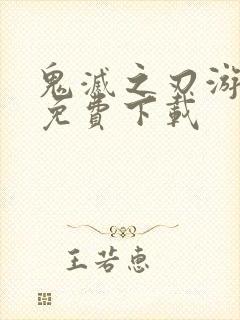 鬼滅之刃游
免費下載
王若惠